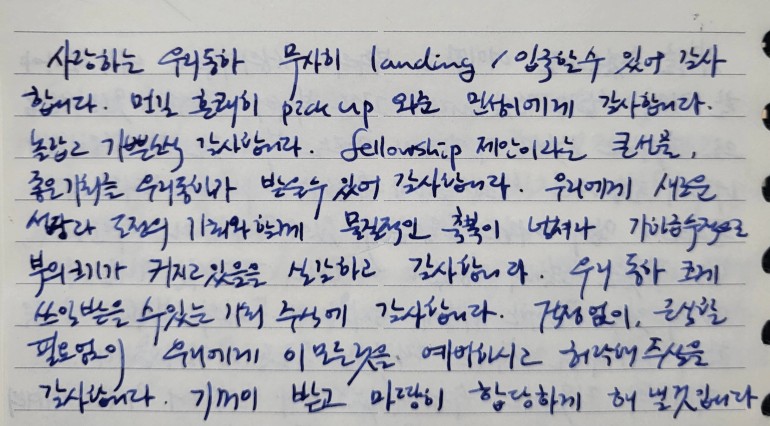 사랑하는 우리동하 무사히 landing / 입국할수 있어 감사
합니다. 먼길 흔쾌히 pick up 와준 민성이에게 감사합니다.
놀랍고 기쁠소식 감사합니다. fellowship 제안이라는 큰선물,
좋은기회를 우리동하가 받을수 있어 감사합니다. 우리에게 새로운
성장과 도전의 기회와 함께 물질적인 축복이 넘쳐나 기하급수적으로
부의크기가 커지고있음을 실감하고 감사합니다. 우리 동하 크게
쓰임받을 수있는 기회 주심에 감사합니다. 걱정없이, 근심할
필요없이 우리에게 이모든것을 예비하시고 허락해 주심을
감사합니다. 기꺼이 받고 마땅히 합당하게 해 낼것입니다